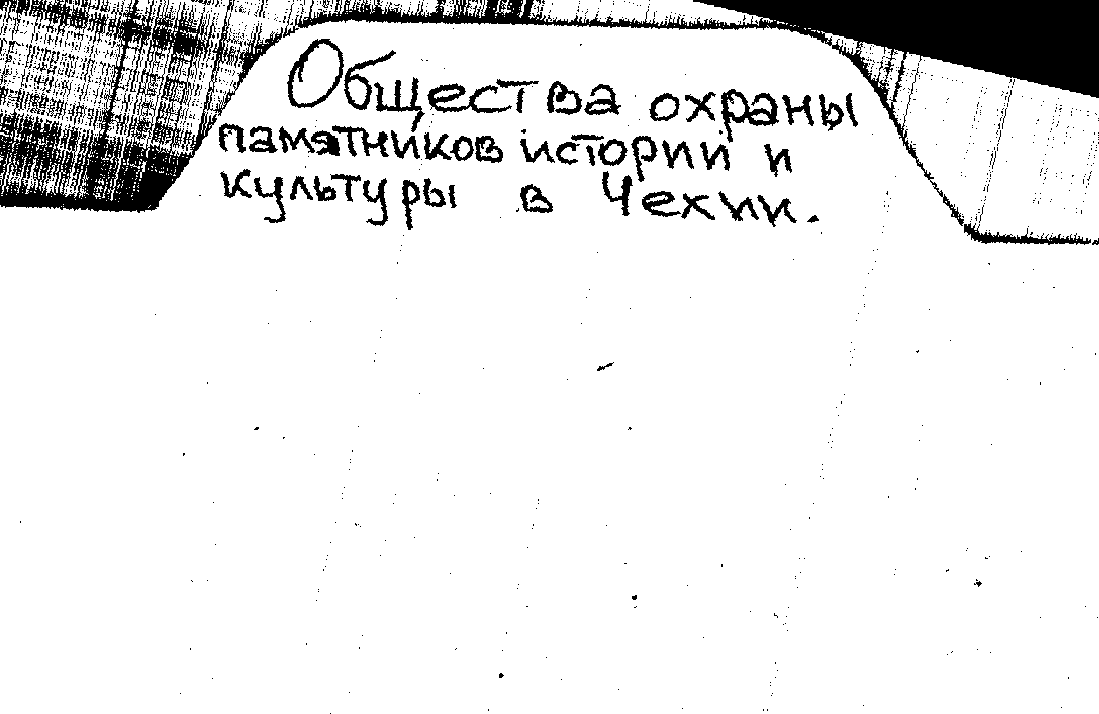 Общества охраны
памятников истории и
культуры в Чехии.